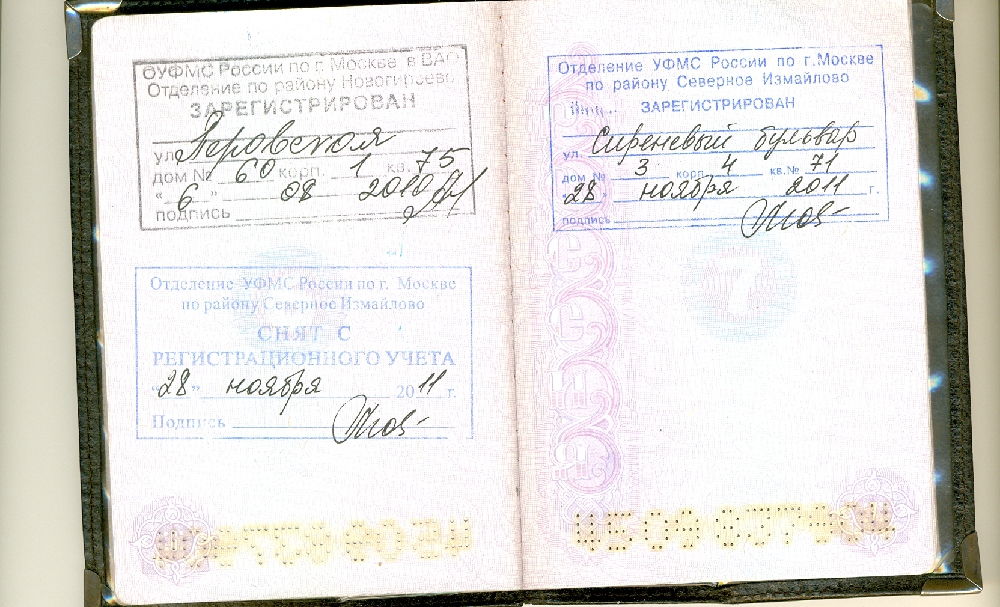 ОУФМС России по г. Москве в ВАО
Отделение по району Новогиреево
ЗАРЕГИСТРИРОВАН
ул Перовская
дом № 60 корп. 1 кв. 75
"6" 08 2010
подпись
Отделение УФМС России по г. Москве
по району Северное Измайлово
СНЯТ С
РЕГИСТРАЦИОННОГО УЧЕТА
"28" ноября 2011 г.
Подпись
Отделение УФМС России по г.Москве
по району Северное Измайлово
ЗАРЕГИСТРИРОВАН
ул. Сиреневый бульвар
дом № 3 корп. 4 кв.№ 71
"28" ноября 2011 г.
подпись
7